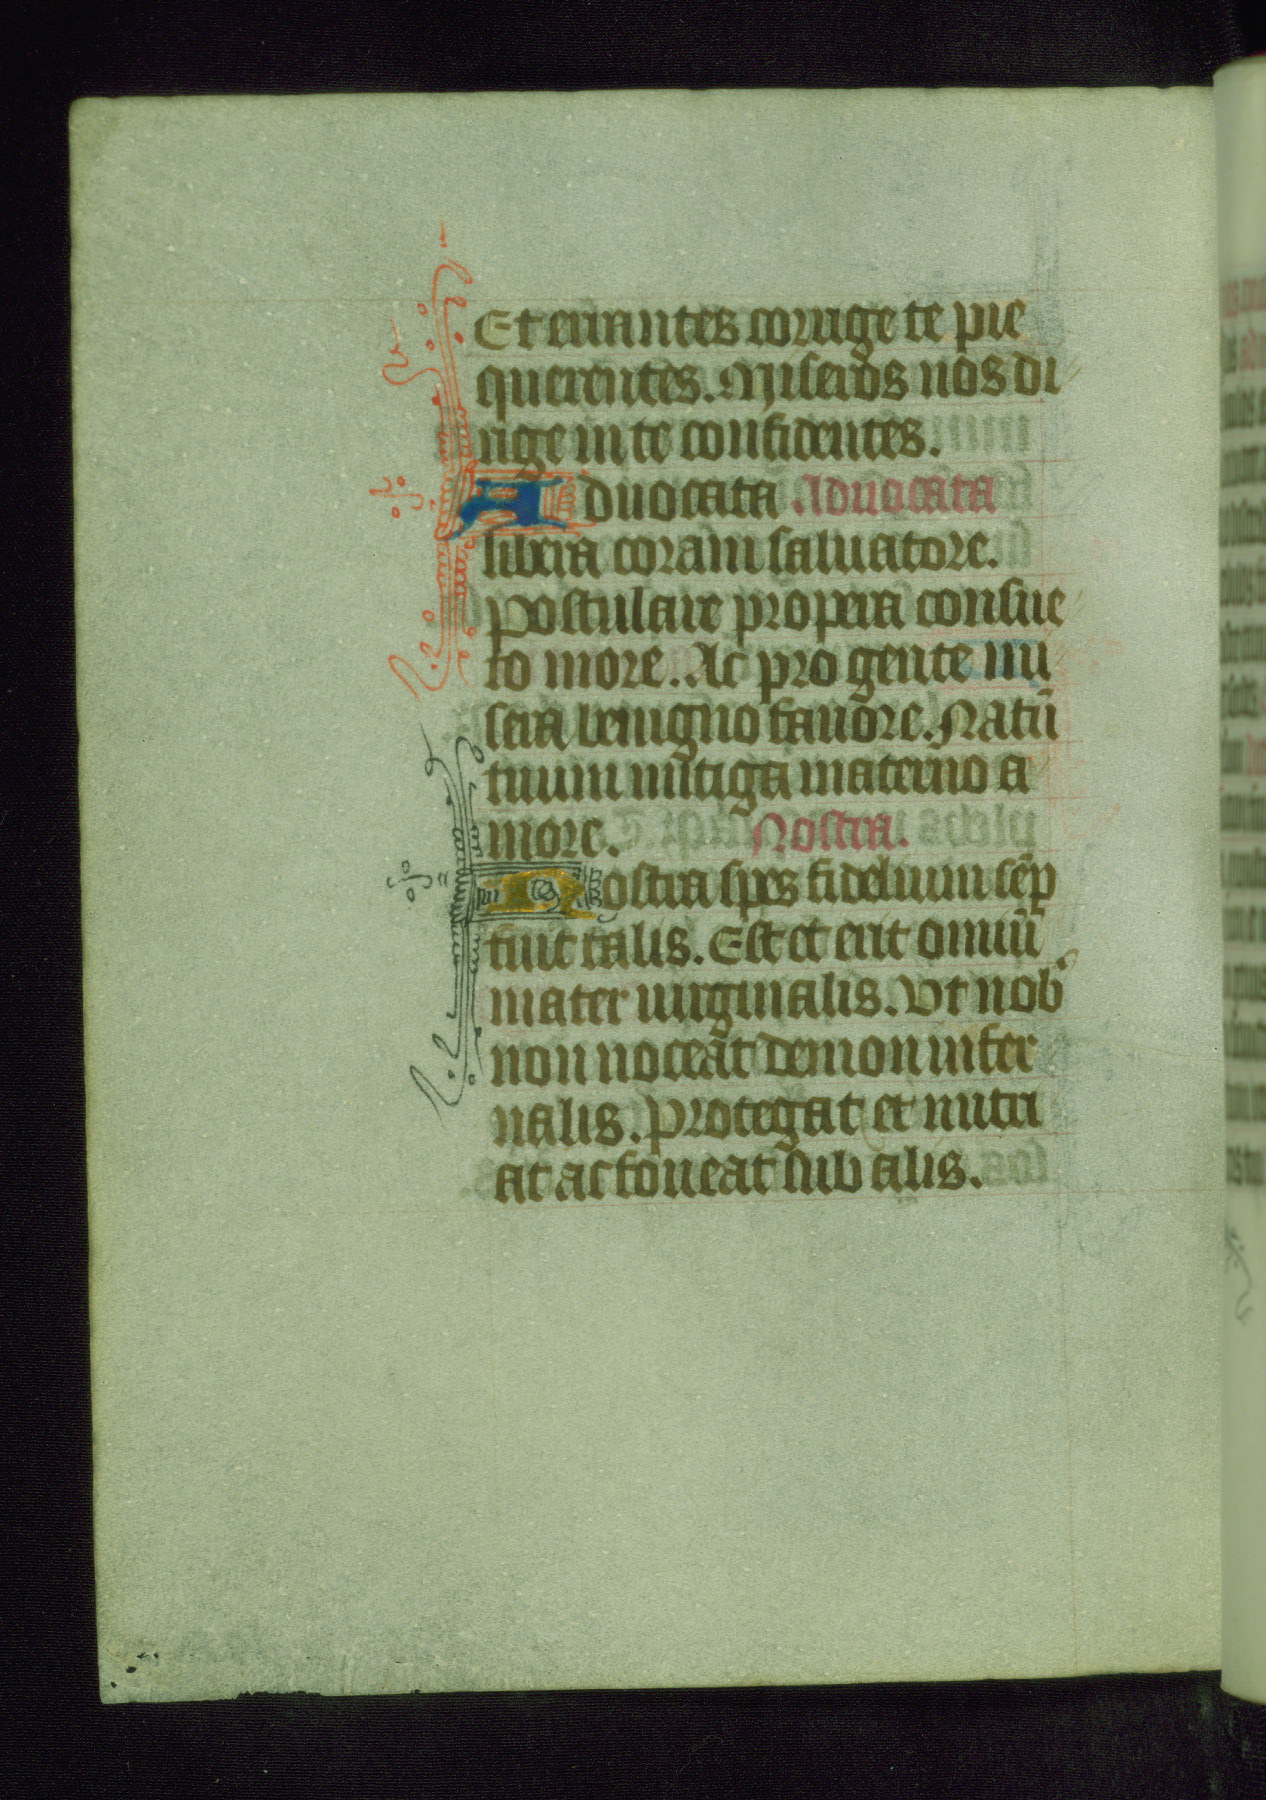 Et errantes corrige te pie
querentes. Miseros nos di
rige in te confidentes.
Aduocata Aduocata
libera coram saluatore.
Postulare propera consue
to more. Ac pro gente mi
sera benigno fauore. Natū
tuum mitiga materno a
more. Nostra.
Nostra spes fidelium sēp
fuit talis. Est et erit omniū
mater uirginalis. Vt nob
non noceat demon infer
nalis. Protegat et nutri
at ac foueat sub alis.